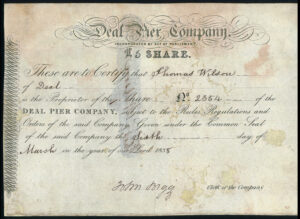 Deal Pier Company.
INCORPORATED BY ACT OF PARLIAMENT
£5 SHARE.
These are to Certify that Thomas Wilson
of Deal
is the Proprietor of the Share No. 2354 of the
DEAL PIER COMPANY, subject to the Rules Regulations and
Orders of the said Company Given under the Common Seal
of the said Company the Sixth day of
March in the year of our Lord 1838
Clerk of the Company